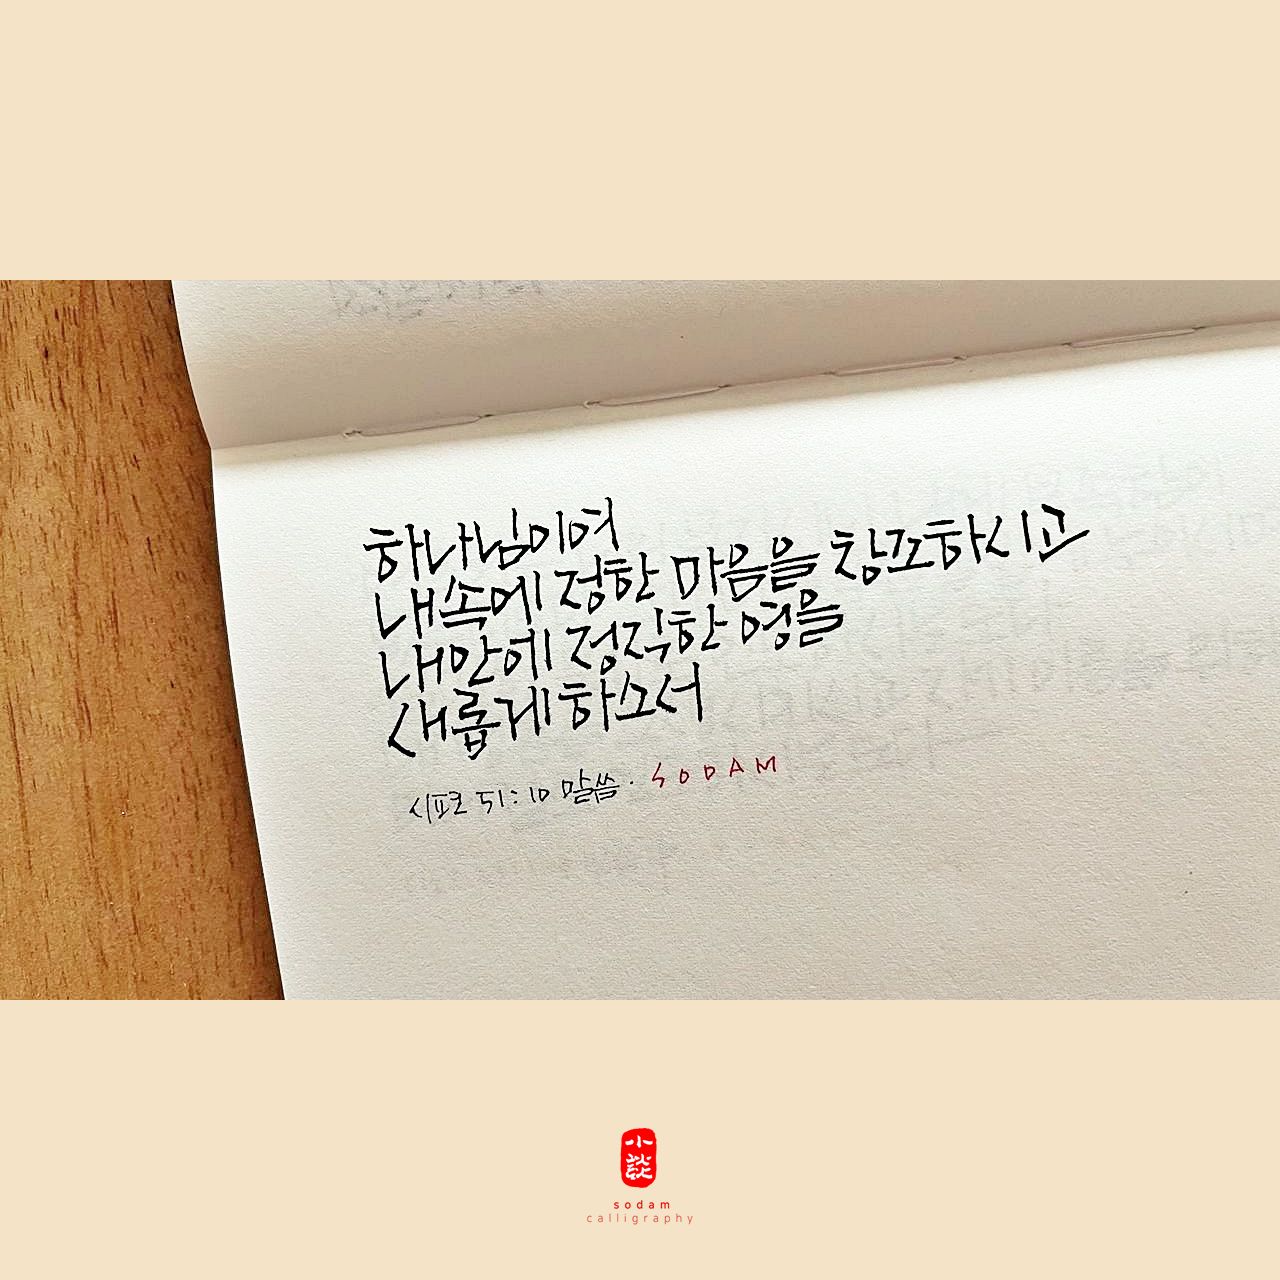 하나님이여
내 속에 정한 마음을 창조하시고
내 안에 정직한 영을
새롭게 하소서
시편 51:10 말씀 · SODAM
小
談
sodam
calligraphy